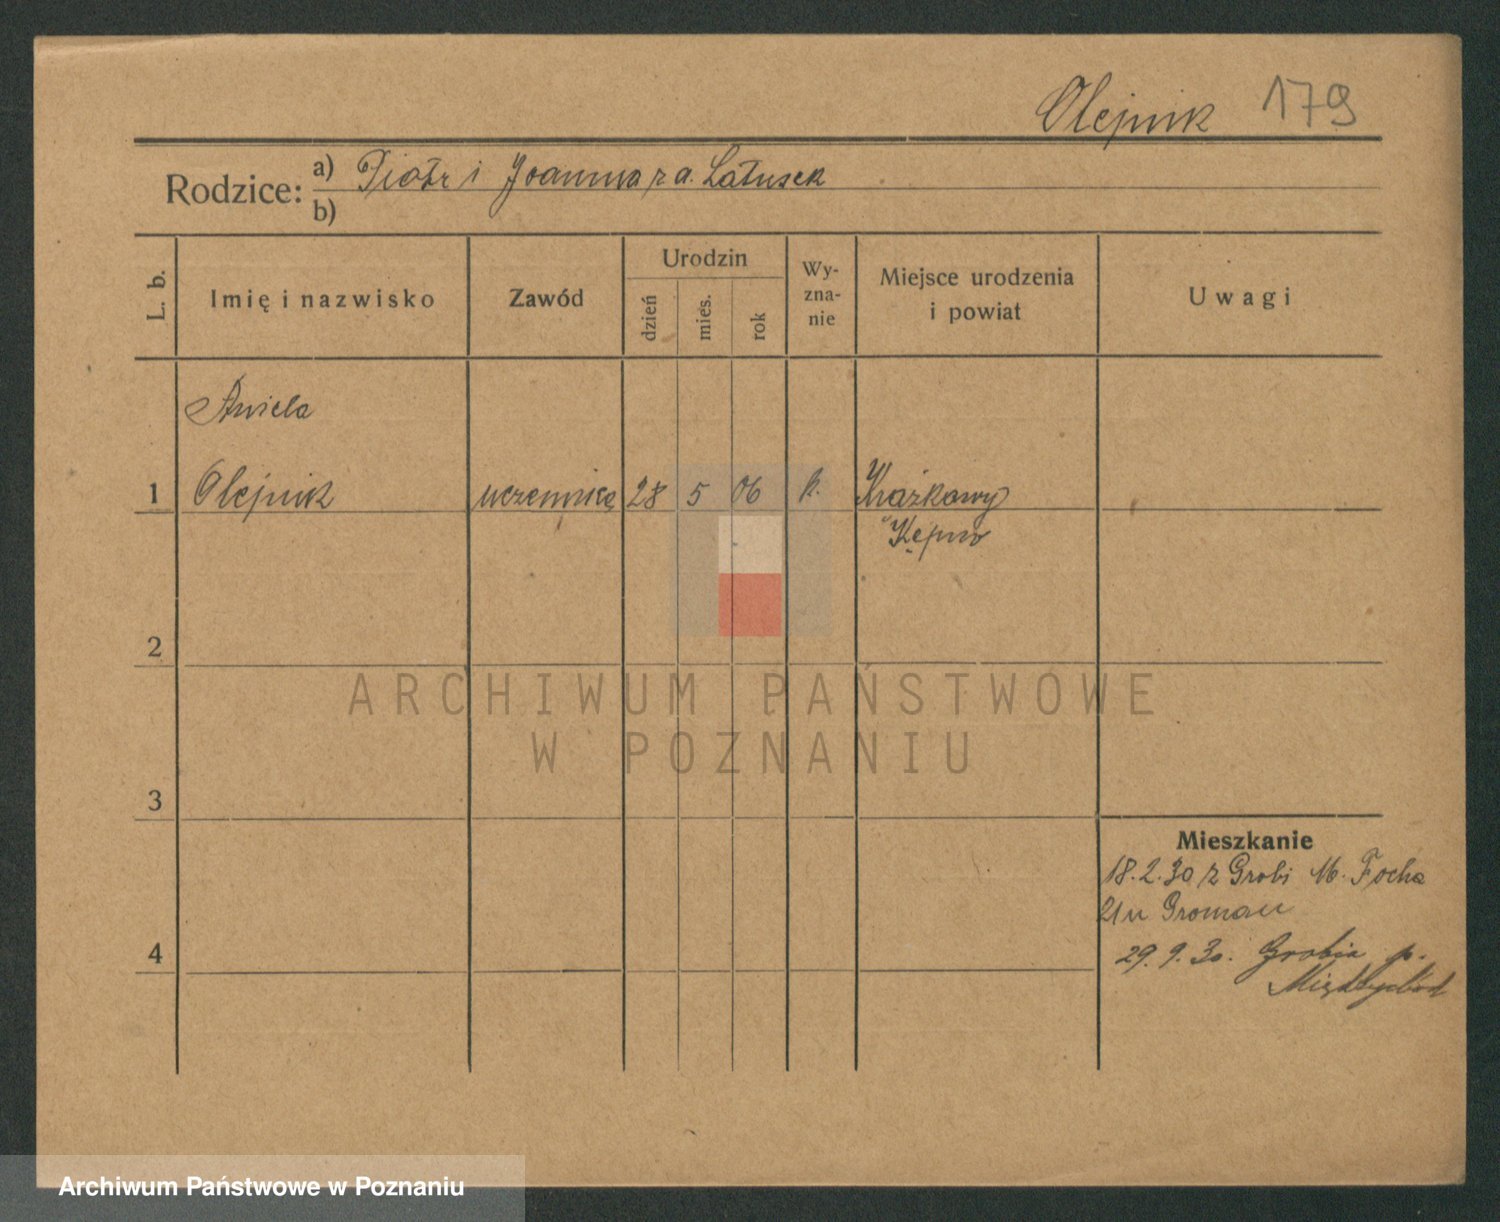 Olejnik 179
Rodzice: a) Piotr i Joanna z d. Latusek
b)
L. b.
Imię i nazwisko
Zawód
Urodzin
dzień
mies.
rok
Wy-
zna-
nie
Miejsce urodzenia
i powiat
Uwagi
Aniela
1 Olejnik uczennica 28 5 06 k. Krążkowy
Kępno
2
ARCHIWUM PAŃSTWOWE
W POZNANIU
3
Mieszkanie
18.2.30 z Grobi M. Focha
21 u
4
29.9.30. Grobia p.
Międzychód
Archiwum Państwowe w Poznaniu